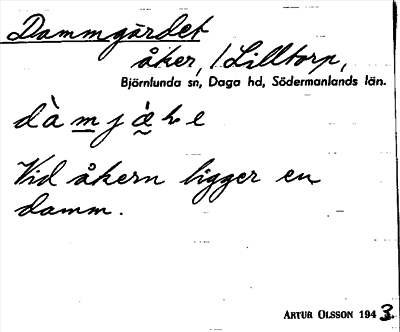 Dammgärdet
åker, / Lilltorp,
Björnlunda sn, Daga hd, Södermanlands län.
Vid åkern ligger en
damm.
ARTUR OLSSON 1943.